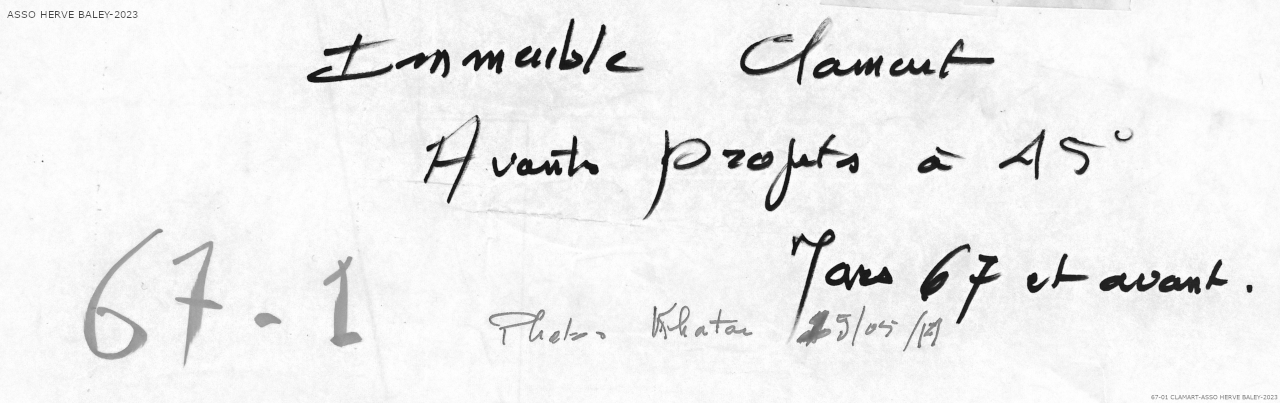 ASSO HERVE BALEY-2023
Immeuble Clamart
Avants projets à 45°
Mars 67 et avant.
67-1
Photos Khatan /05/
67-01 CLAMART-ASSO HERVE BALEY-2023